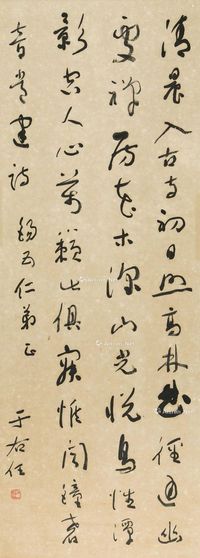 清晨入古寺初日照高林竹徑通幽
處禪房花木深山光悅鳥性潭
影空人心萬籟此俱寂惟聞鐘磬
音 常建詩 錫五仁弟正 于右任